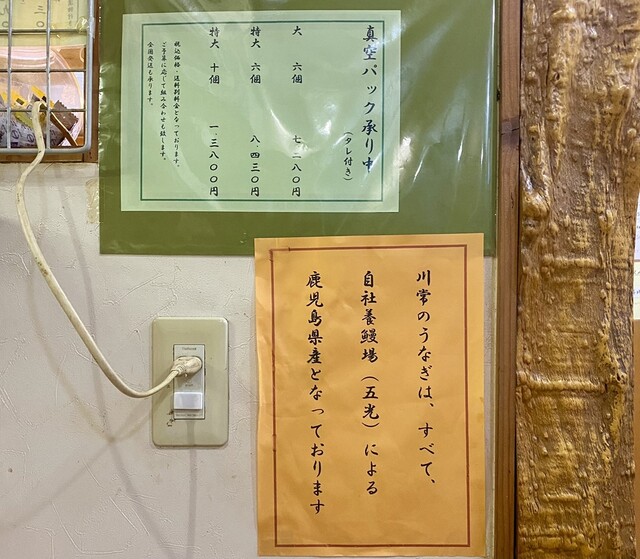 真空パック承り中
（タレ付き）
大 六個 七、二八〇円
特大 六個 八、四三〇円
特大 十個 一、三八〇〇円
税込価格・送料別料金となっております。
ご予算に応じて組み合わせも致します。
全国発送も承ります。
川常のうなぎは、すべて、
自社養鰻場（五光）による
鹿児島県産となっております